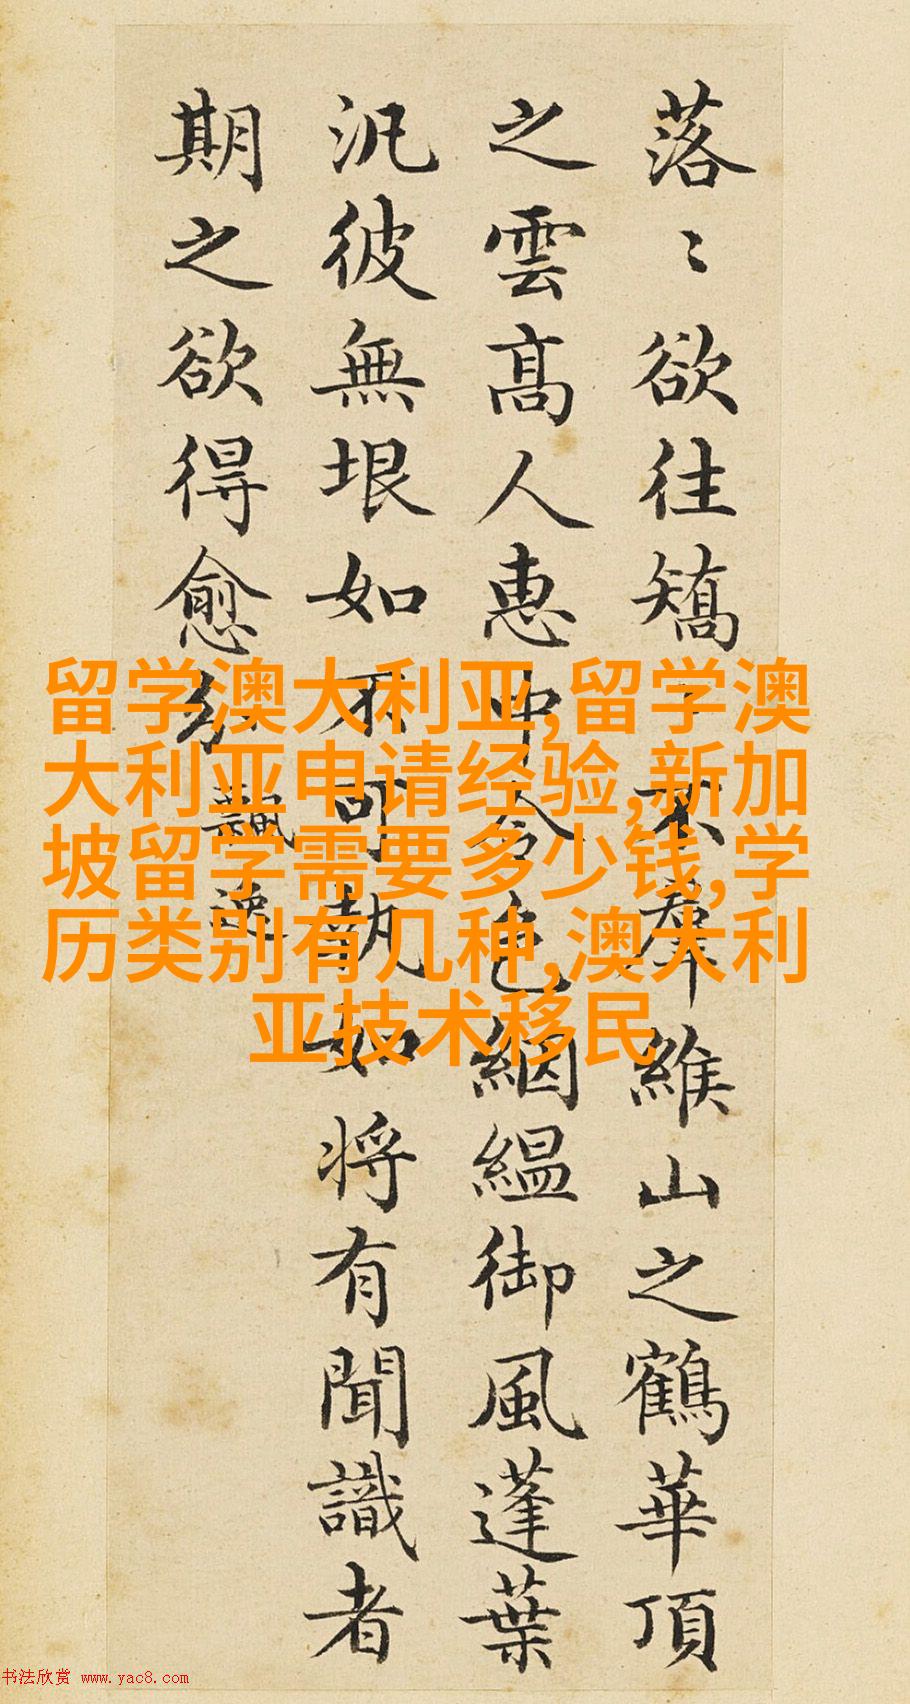 落〻欲往矯〻不羣緱山之鶴華頂
之雲髙人惠中令色絪緼御風蓬葉
汎彼無垠如不可執如将有聞識者
期之欲得愈分 飄逸
留学澳大利亚,留学澳
大利亚申请经验,新加
坡留学需要多少钱,学
历类别有几种,澳大利
亚技术移民
书法欣赏 www.yac8.com